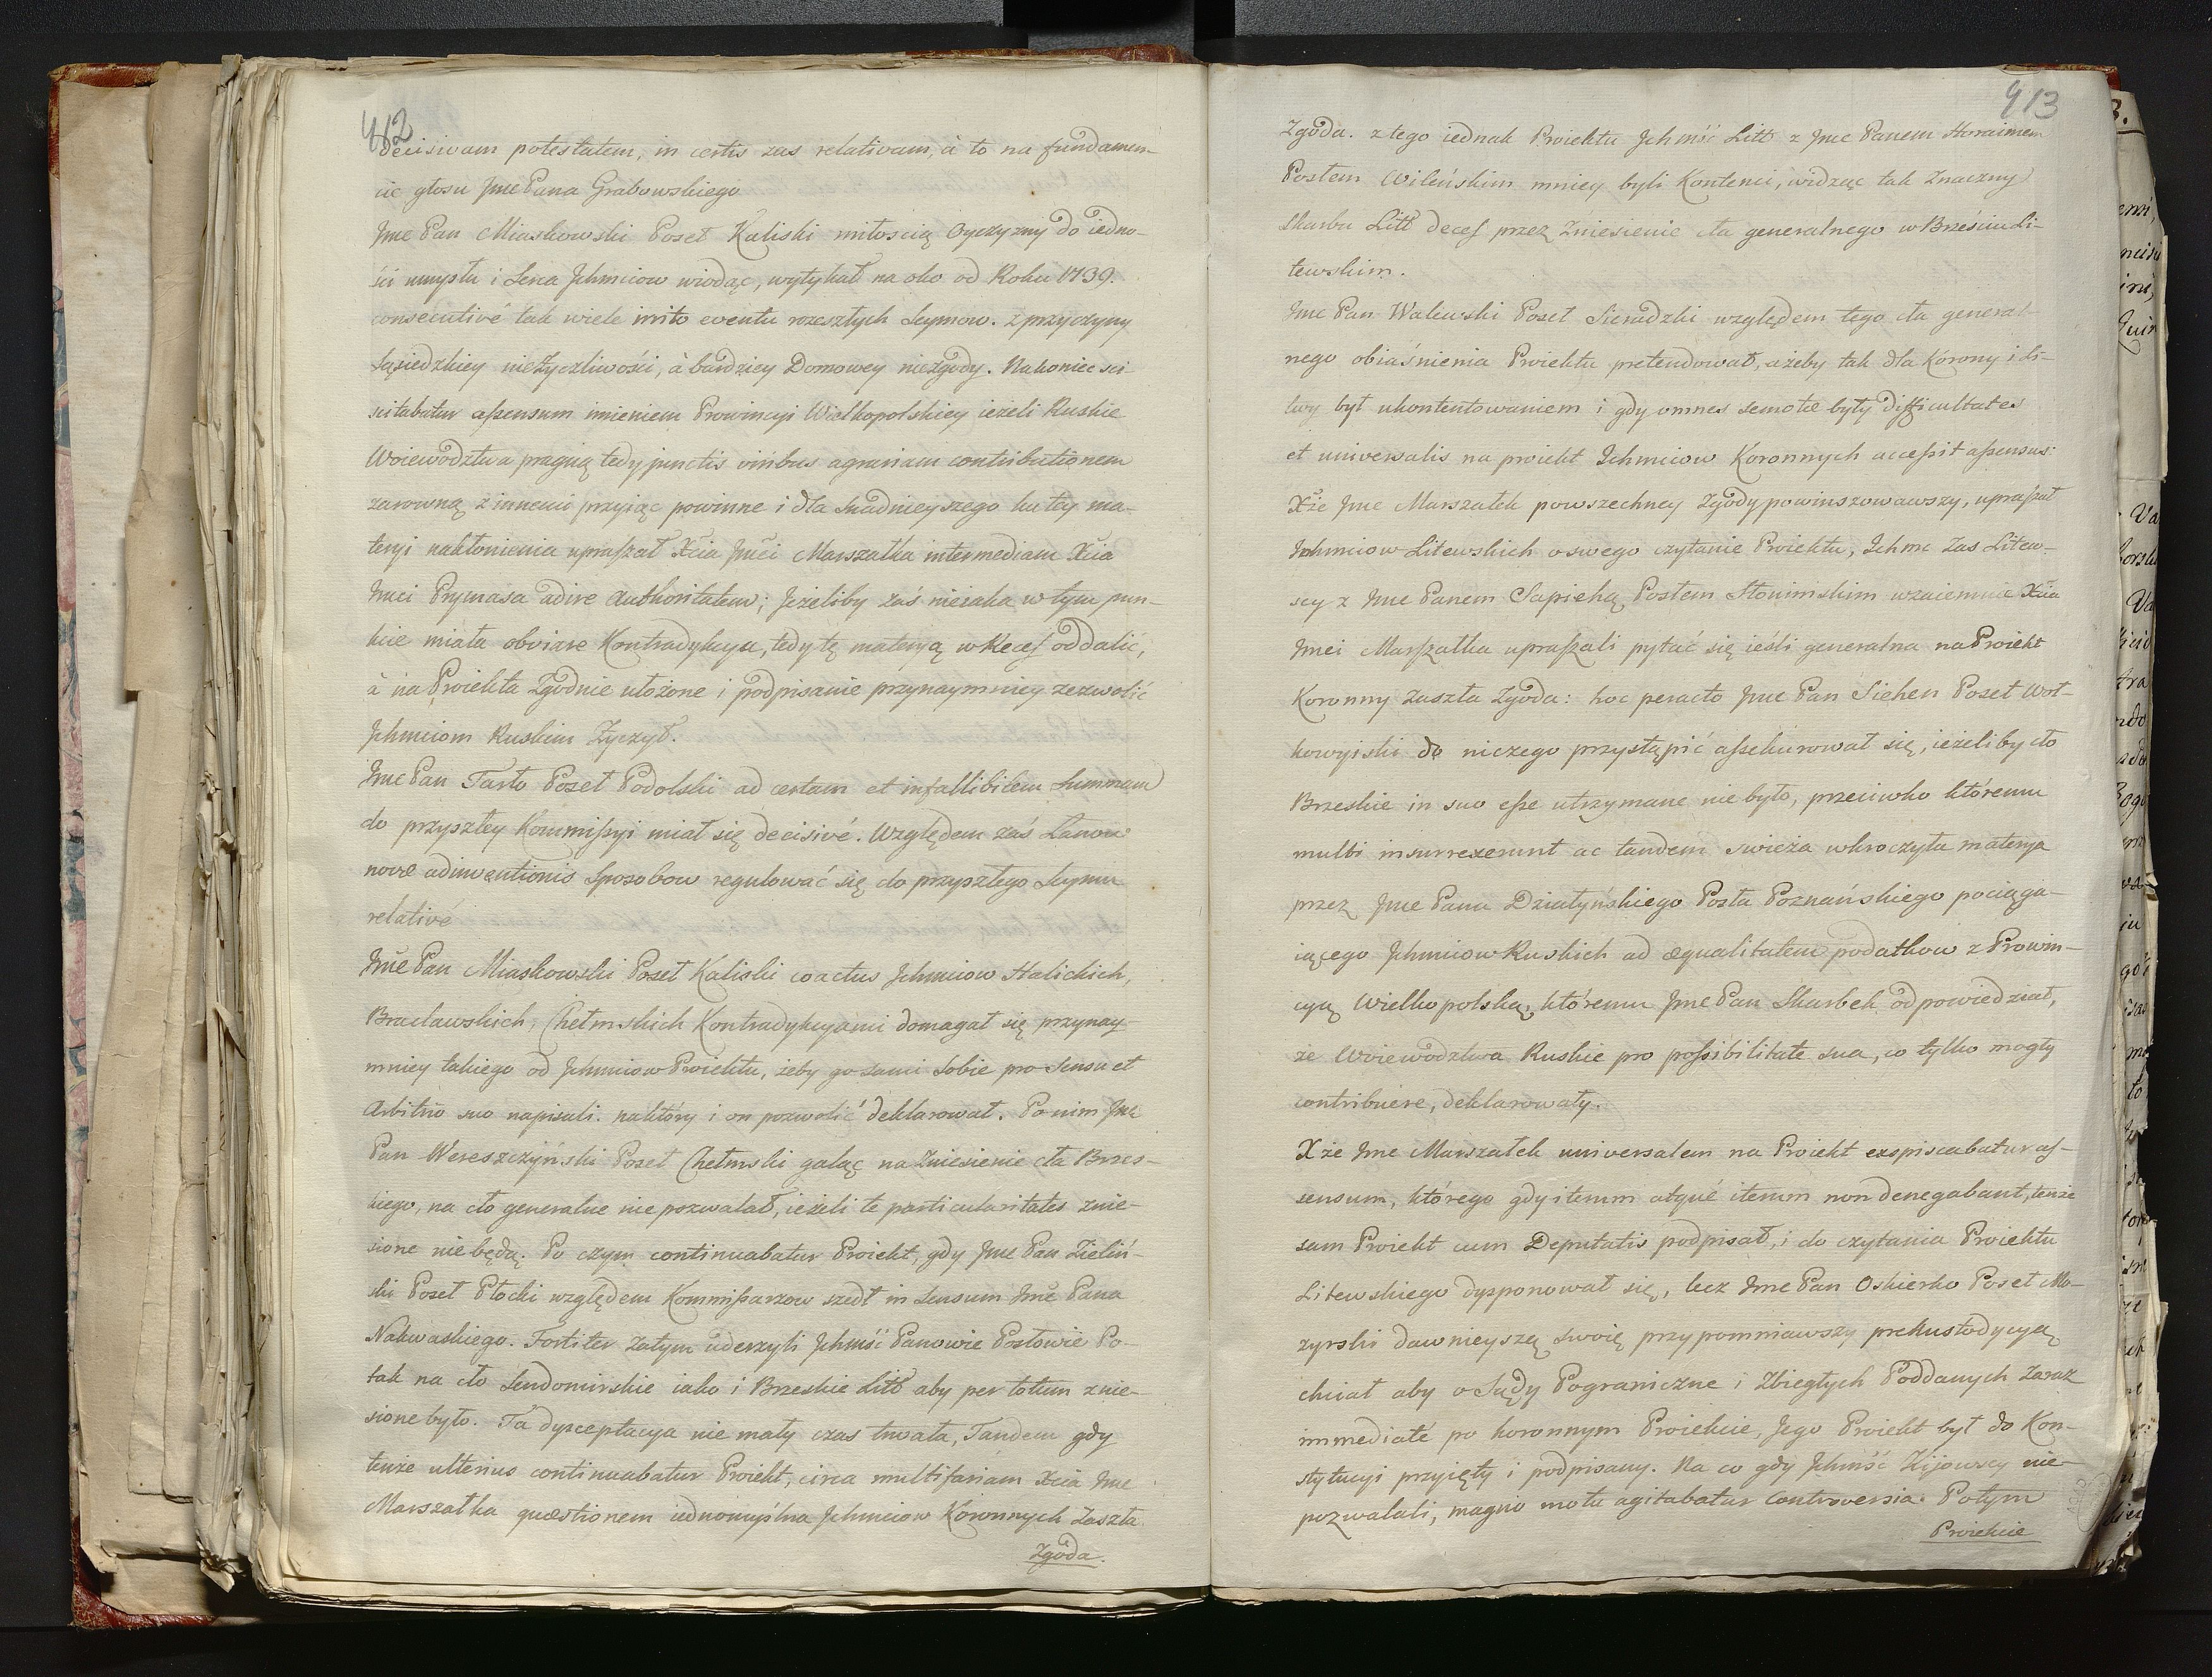 412
decisivam potestatem, in certis zas relativam, à to na fundamen-
cie głosu Jmc Pana Grabowskiego
Jmc Pan Miaskowski Poseł Kaliski miłoscią Oyczyzny do iedno-
ści umysłu i Serca Jchmciow wiodąc, wytykał na oko od Roku 1739.
consecutivé tak wiele irrito eventu rozeszłych Seymow. z przyczyny
Sąsiedzkiey nieżyczliwości, à bardziey Domowey niezgody. Nakoniec sci
scitabatur assensum imieniem Prowincyi Wielkopolskiey ieżeli Ruskie
Woiewodztwa pragną tedy junctis viribus agrariam contributionem
zarowną z innemi przyiąc powinne i dla snadnieyszego ku tey ma-
teryi nakłonienia upraszał Xcia Jmci Marszałka intermediam Xcia
Jmci Prymasa adire Authoritatem; Jeżeliby zaś nieiaka w tym pun-
kcie miała obviare Kontradykcya, tedy tę materyą w Reces oddalić,
à na Proiekta Zgodnie ułożone i podpisanie przynaymniey zezwolić
Jchmciom Ruskim Życzył.
Jmc Pan Tarło Poseł Podolski ad certam et infallibilem Summam
do przyszłey Kommissyi miał się decisivé. Względem zaś Łanow
novæ adinventionis Sposobow regulować się do przyszłego Seymu
relativé
Jmc Pan Miaskowski Poseł Kaliski coactus Jchmciow Halickich,
Bracławskich, Chełmskich Kontradykcyami domagał się przynay
mniey takiego od Jchmciow Proiektu, żeby go sami Sobie pro Sensu et
Arbitrio suo napisali. na który i on pozwolić deklarował. Po nim Jmc
Pan Wereszczyński Poseł Chełmski galąc na Zniesienie cła Brzes-
kiego, na cło generalne nie pozwalał, ieżeli te particularitates znie-
sione nie będą. Po czym continuabatur Proiekt, gdy Jmc Pan Zieliń-
ski Poseł Płocki względem Kommissarzow szedł in Sensum Jmc Pana
Nakwaskiego. Fortiter Zatym uderzyli Jchmść Panowie Posłowie Po-
tak na cło Sendomirskie iako i Brzeskie Litt aby per totum znie-
sione było. Ta dysceptacya nie mały czas trwała, Tandem gdy
tenże ulterius continuabatur Proiekt, circa multifariam Xcia Jmc
Marszałka quæstionem iednomyślna Jchmciow Koronnych Zaszła
Zgoda.
413
Zgoda. z tego iednak Proiektu Jchmść Litt z Jmc Panem Horaimem
Posłem Wileńskim mniey byli Kontenci, widząc tak Znaczny
Skarbu Litt deces przez Zniesienie cła generalnego w Brześciu Li-
tewskim.
Jmc Pan Walewski Poseł Sieradzki względem tego cła general-
nego obiaśnienia Proiektu pretendował, ażeby tak dla Korony i Li-
twy był ukontentowaniem i gdy omnes semotæ były difficultates
et universalis na proiekt Ichmciow Koronnych accessit assensus:
Xże Jmc Marszałek powszechney Zgody powinszowawszy, upraszał
Ichmciow Litewskich o swego czytanie Proiektu, Ichmc Zas Litew-
scy z Jmc Panem Sapiehą Posłem Słonimskim wzaiemnie Xcia
Jmci Marszałka upraszali pytać się ieśli generalna na Proiekt
Koronny Zaszła Zgoda: hoc peracto Jmc Pan Siehen Poseł Woł-
kowyiski do niczego przystąpić assekurował się, ieżeliby cło
Brzeskie in suo esse utrzymane nie było, przeciwko któremu
multi insurrexerunt ac tandem swieża wkroczyła materya
przez Jmc Pana Działyńskiego Posła Poznańskiego pociąga-
iącego Jchmciow Ruskich ad æqualitatem podatkow z Prowin-
cyą Wielkopolską, któremu Jmc Pan Skarbek odpowiedział,
że Woiewodztwa Ruskie pro possibilitate sua, co tylko mogły
contribuere, deklarowały.
Xże Jmc Marszałek universalem na Proiekt expiscabatur as-
sensum, którego gdy iterum atqué iterum non denegabant, tenże
sam Proiekt cum Deputatis podpisał, i do czytania Proiektu
Litewskiego dysponował się, lecz Jmc Pan Oskierko Poseł Mo-
zyrski dawnieyszą swoię przypomniawszy prekustodycyą
chciał aby o Sądy Pograniczne i Zbiegłych Poddanych Zaraz
immediaté po koronnym Proiekcie, Jego Proiekt był do Kon-
stytucyi przyięty i podpisany. Na co gdy Jchmść Kijowscy nie-
pozwalali, magno motu agitabatur Controversia. Potym
Proiekcie